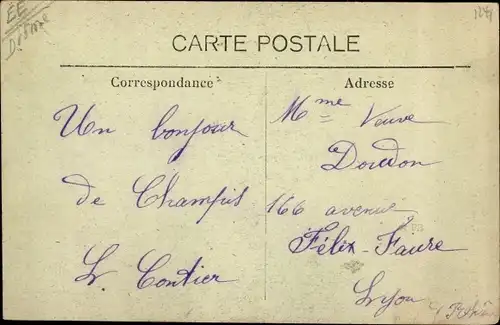 EE
Drôme
CARTE POSTALE
Correspondance
Adresse
Un bonjour
de Champis
L. Contier
Mme Veuve
Doudon
166 avenue
Félix-Faure
Lyon
(Rhône